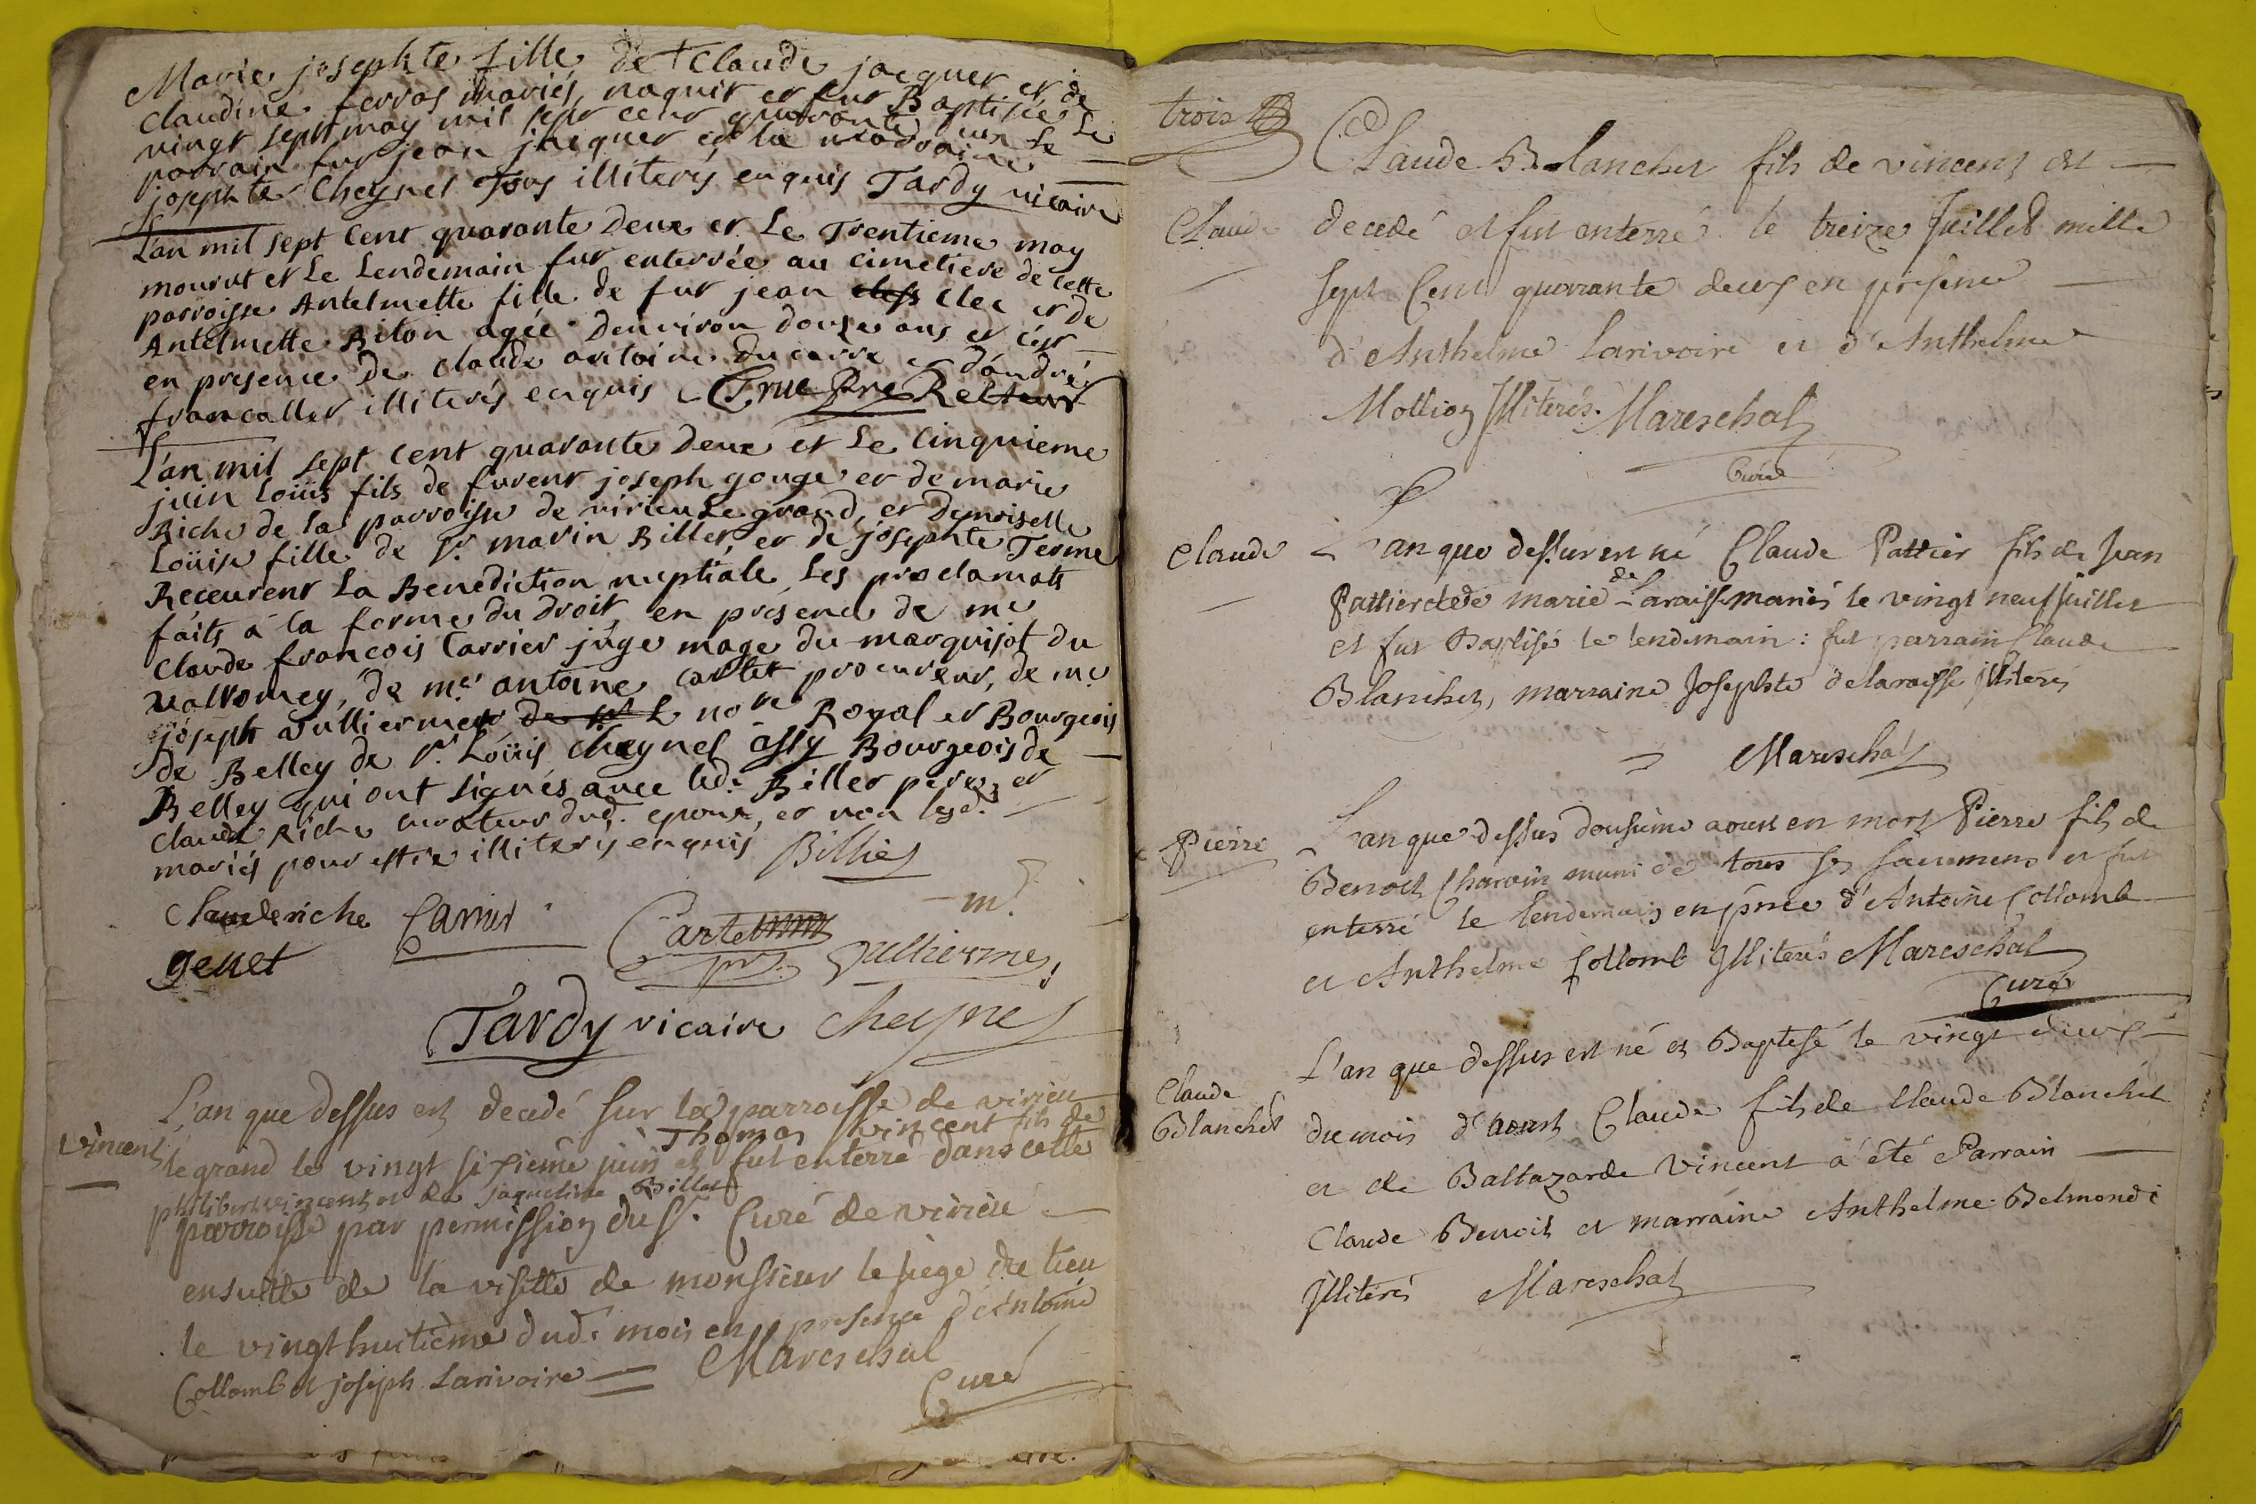 Marie josephte fille de Claude jacquer et de
Claudine ferras mariés, naquit et fut Baptisée Le
vingt sept may mil sept cent quarante deux Le
parrain fut jean jacquer et la marraine
josephte Cheynel Tous illiterés enquis Tardy vicaire
Lan mil sept Cent quarante Deux et Le Trentieme may
mourut et Le Lendemain fut enterrée au Cimetiere de Cette
parroisse Antelmette fille de fut jean clec et de
Antelmette Biton agée Denviron douze ans et c'est
en presence De Claude antoine du carre et d'andré
francallet illiterés enquis Recteur
L'an mil sept Cent quarante Deux et Le Cinquieme
juin Loüis fils de furent joseph gouge et de marie
Riche de la parroisse de virieu Le grand, et Demoiselle
Loüise fille de Sr. marin Billet, et de josephte Terme
Receurent La Benediction nuptiale Les proclamats
faits à la forme du Droit en présence de me
Claude francois Carrier juge mage du marquisat du
valromey, de me antoine cartet procureur, de me
joseph vulliermet nore Royal et Bourgeois
de Belley de Sr. Loüis Cheynel assy Bourgeois de
Belley qui ont signés avec led. Billet pere, et
Claude Riche curateur dud. epoux, et non lesd.
mariés pour estre illiterés enquis Billiet
Claude riche Carrier Cartet
genet vulliermet
Tardy vicaire Cheynel
L'an que dessus est decedé sur la parroisse de virieu
Vincent
le grand le vingt sixieme juin Thomas vincent fils de
philibert vincent et de jaqueline Billet
et fut enterré dans cette
parroisse par permission du Sr. Curé de virieu
ensuitte de la visitte de monsieur le siege du lieu
le vingthuitième dud. mois en presence d'Antoine
Collomb et joseph Larivoire Mareschal
Curé
trois
Claude Blanchet fils de vincent est
Claude
decedé et fut enterré le treize Juillet mille
sept Cent quarrante deux en présence
d'Anthelme Larivoire et d'Anthelme
Mollion Illiterés. Mareschal
Curé
Claude
L'an que dessus est né Claude Pattier fils de Jean
Pattier et de marie de Laraisse mariés le vingt neuf juillet
et fut Baptisé le lendemain : fut parrain Claude
Blanchet, marraine Josephte delaraisse Illiterés
Mareschal
Pierre
L'an que dessus dousieme aoust est mort Pierre fils de
Benoit Charvin muni de tous ses sacremens et fut
enterré le lendemain en pnce d'Antoine Collomb
et Anthelme Collomb Illiterés Mareschal
Curé
L'an que dessus est né et Baptisé le vingt deux
Claude
Blanchet
du mois d'aoust Claude fils de Claude Blanchet
et de Baltazarde Vincent à été Parrain
Claude Benoit et marraine Anthelme Belmond
Illiterés Mareschal